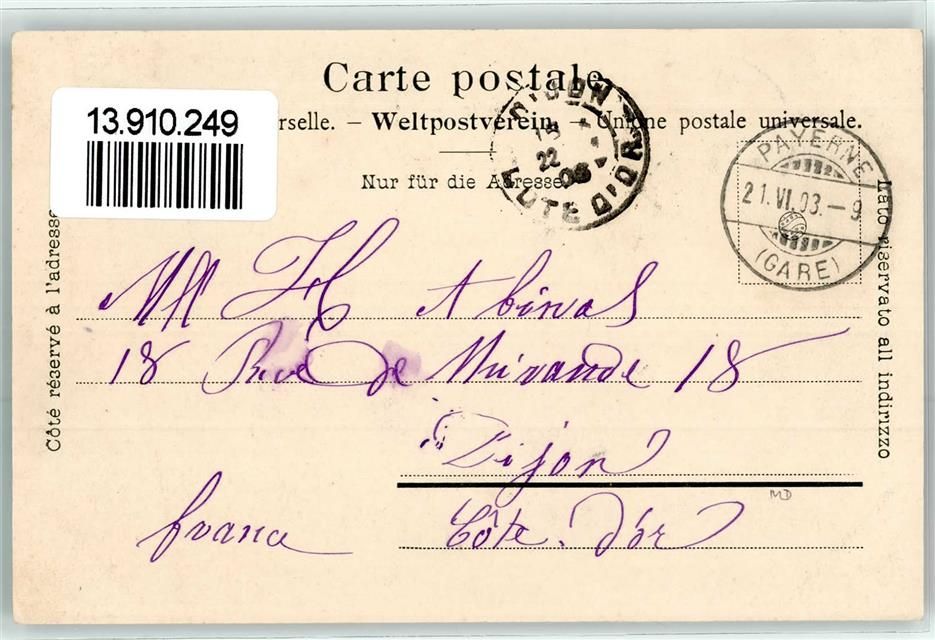 Carte postale
13.910.249
rselle. – Weltpostverein. – Unione postale universale.
Nur für die Adresse.
Côté réservé à l'adresse
Lato riservato all indirizzo
DIJON
22
03
COTE D'OR
PAYERNE
21.VI.03.–9
(GARE)
H Abinal
18 Rue de Mirande 18
Dijon
france Côte. d'or
MD